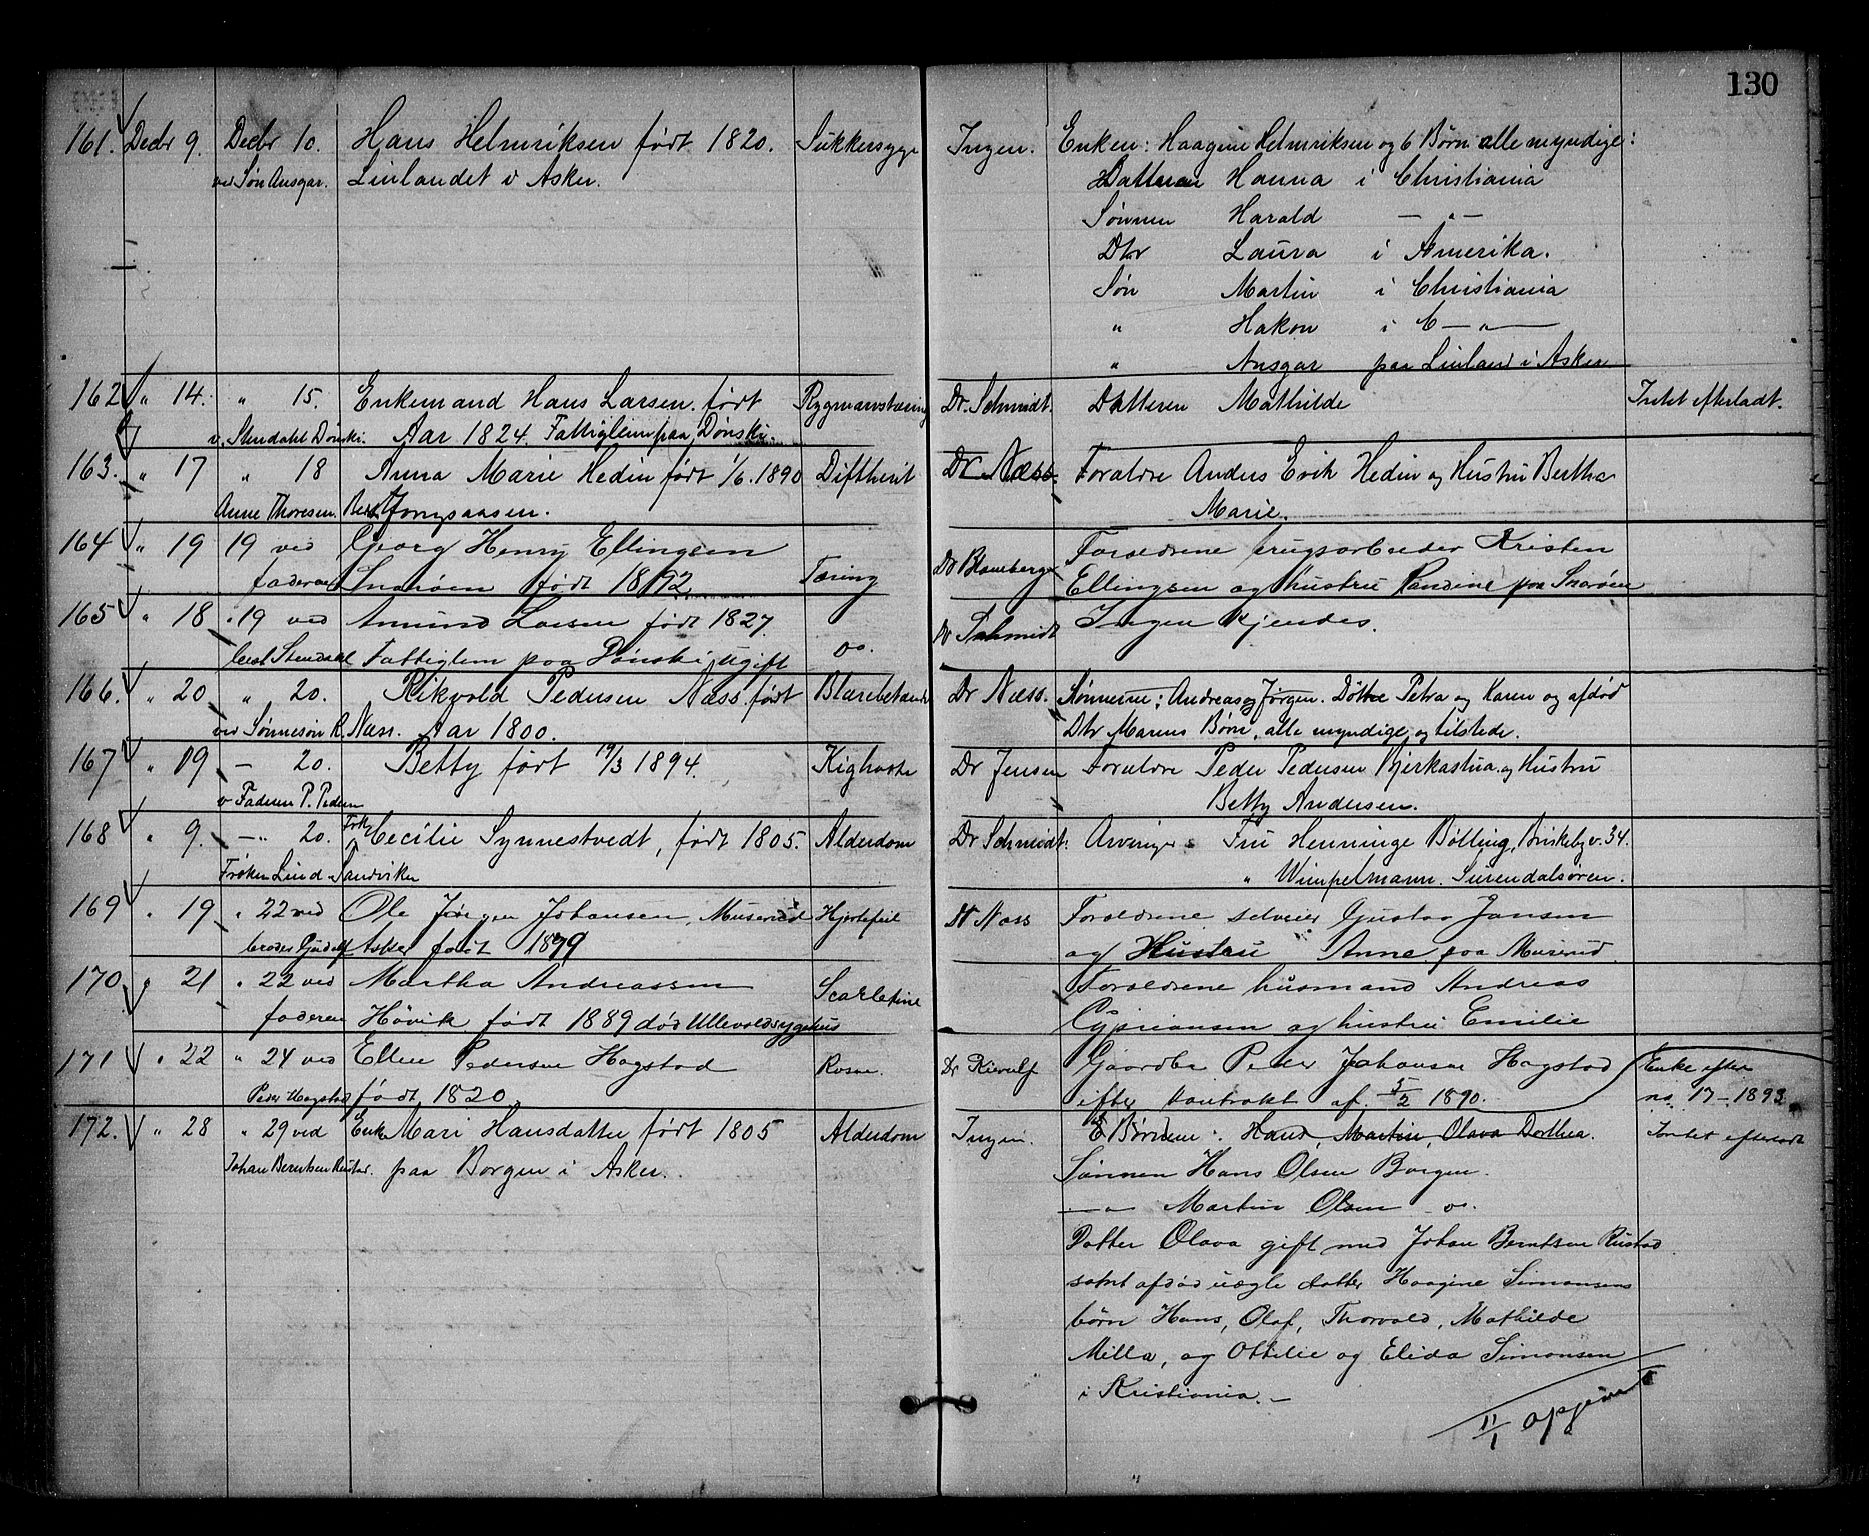 130
161. Decbr 9. Decbr 10. Hans Helmriksen født 1820. Sukkersyge Ingen. Enken: Haagine Helmriksen og 6 Børn alle myndige:
ved Søn Ansgar. Linlandet v Asker. Datteren Hanna i Christiania
Sønnen Harald — " —
Dtr Laura i Amerika.
Søn Martin i Christiania
" Hakon i C — " —
" Ansgar paa Linland i Asker
162 " 14. " 15. Enkemand Hans Larsen født Rygmarvstæring Dr. Schmidt. Datteren Mathilde Intet efterladt.
v. Stendahl Dønski. Aar 1824. Fattiglem paa Dønski.
163. " 17 " 18 Anna Marie Hedin født 1/6. 1890 Diftherit Dr Næss. Forældre Anders Erik Hedin og Hustru Bertha
Anne Thoresen. Jongsaasen. Marie.
164 " 19 19 ved Georg Henry Ellingsen Tæring Dr Forældrene brugsarbeider Kristen
faderen Snarøen født 1892 Ellingsen og hustru Pandine paa Snarøen
165 " 18 " 19 ved Amund Larsen født 1827. do. Dr Schmidt Ingen kjendes.
Stendahl Fattiglem paa Dønski ugift
166. " 20 " 20. Rikvold Pedersen Næss. født Blærebetænd Dr Næss. Sønnerne: Andreas og Jørgen. Døtre Petra og Karen og afdød
ved Sønnesøn R. Næss. Aar 1800. Dtr Marens Børn, alle myndige og tilstede.
167 " 19 — 20. Betty født 19/3 1894. Kighoste Dr Jensen Forældre Peder Pedersen Bjerkastua og Hustru
v Faderen P. Pedersen Betty Andersen.
168 " 9. — " 20. Frk Cecilie Synnestvedt, født 1805. Alderdom Dr Schmidt. Arvinger: Fru Henninge Bølling, Briskebyv. 34.
Frøken Lind Sandviken " Wimpelmann. Surendalsøren.
169 " 19 " 22 ved Ole Jørgen Johansen, Muserud Hjertefeil Dr Næss Forældrene selveier Gustav Jansen
broder Gudolf Asker født 1879 og Hustru Anne paa Muserud
170. " 21 " 22 ved Martha Andreassen Scarlatine Forældrene husmand Andreas
faderen Høvik født 1889 død Ullevoldsygehus Cypriansen og hustru Emilie
171. " 22 " 24 ved Ellen Pedersen Hagstad Rosen. Dr Kierulf Gaardbr Peder Johansen Hagstad Enke efter
Peder Hagstad født 1820. efter kontrakt af 5/2 1890. no. 17 – 1893.
172. " 28 " 29 ved Enke Mari Hansdatter født 1805 Alderdom Ingen. Børnene: Hans, Martin Olava Dorthea. Intet efterladt
Johan Berntsen Rustad. paa Borgen i Asker. Sønnen Hans Olsen Borgen.
— " — Martin Olsen do.
Datter Olava gift med Johan Berntsen Rustad
samt afdød uægte datter Haagine Simonsens
børn Hans, Olaf, Thorvald, Mathilde
Milla, og Ottilie og Elida Simonsen
i Kristiania. —
11/1 opgjort